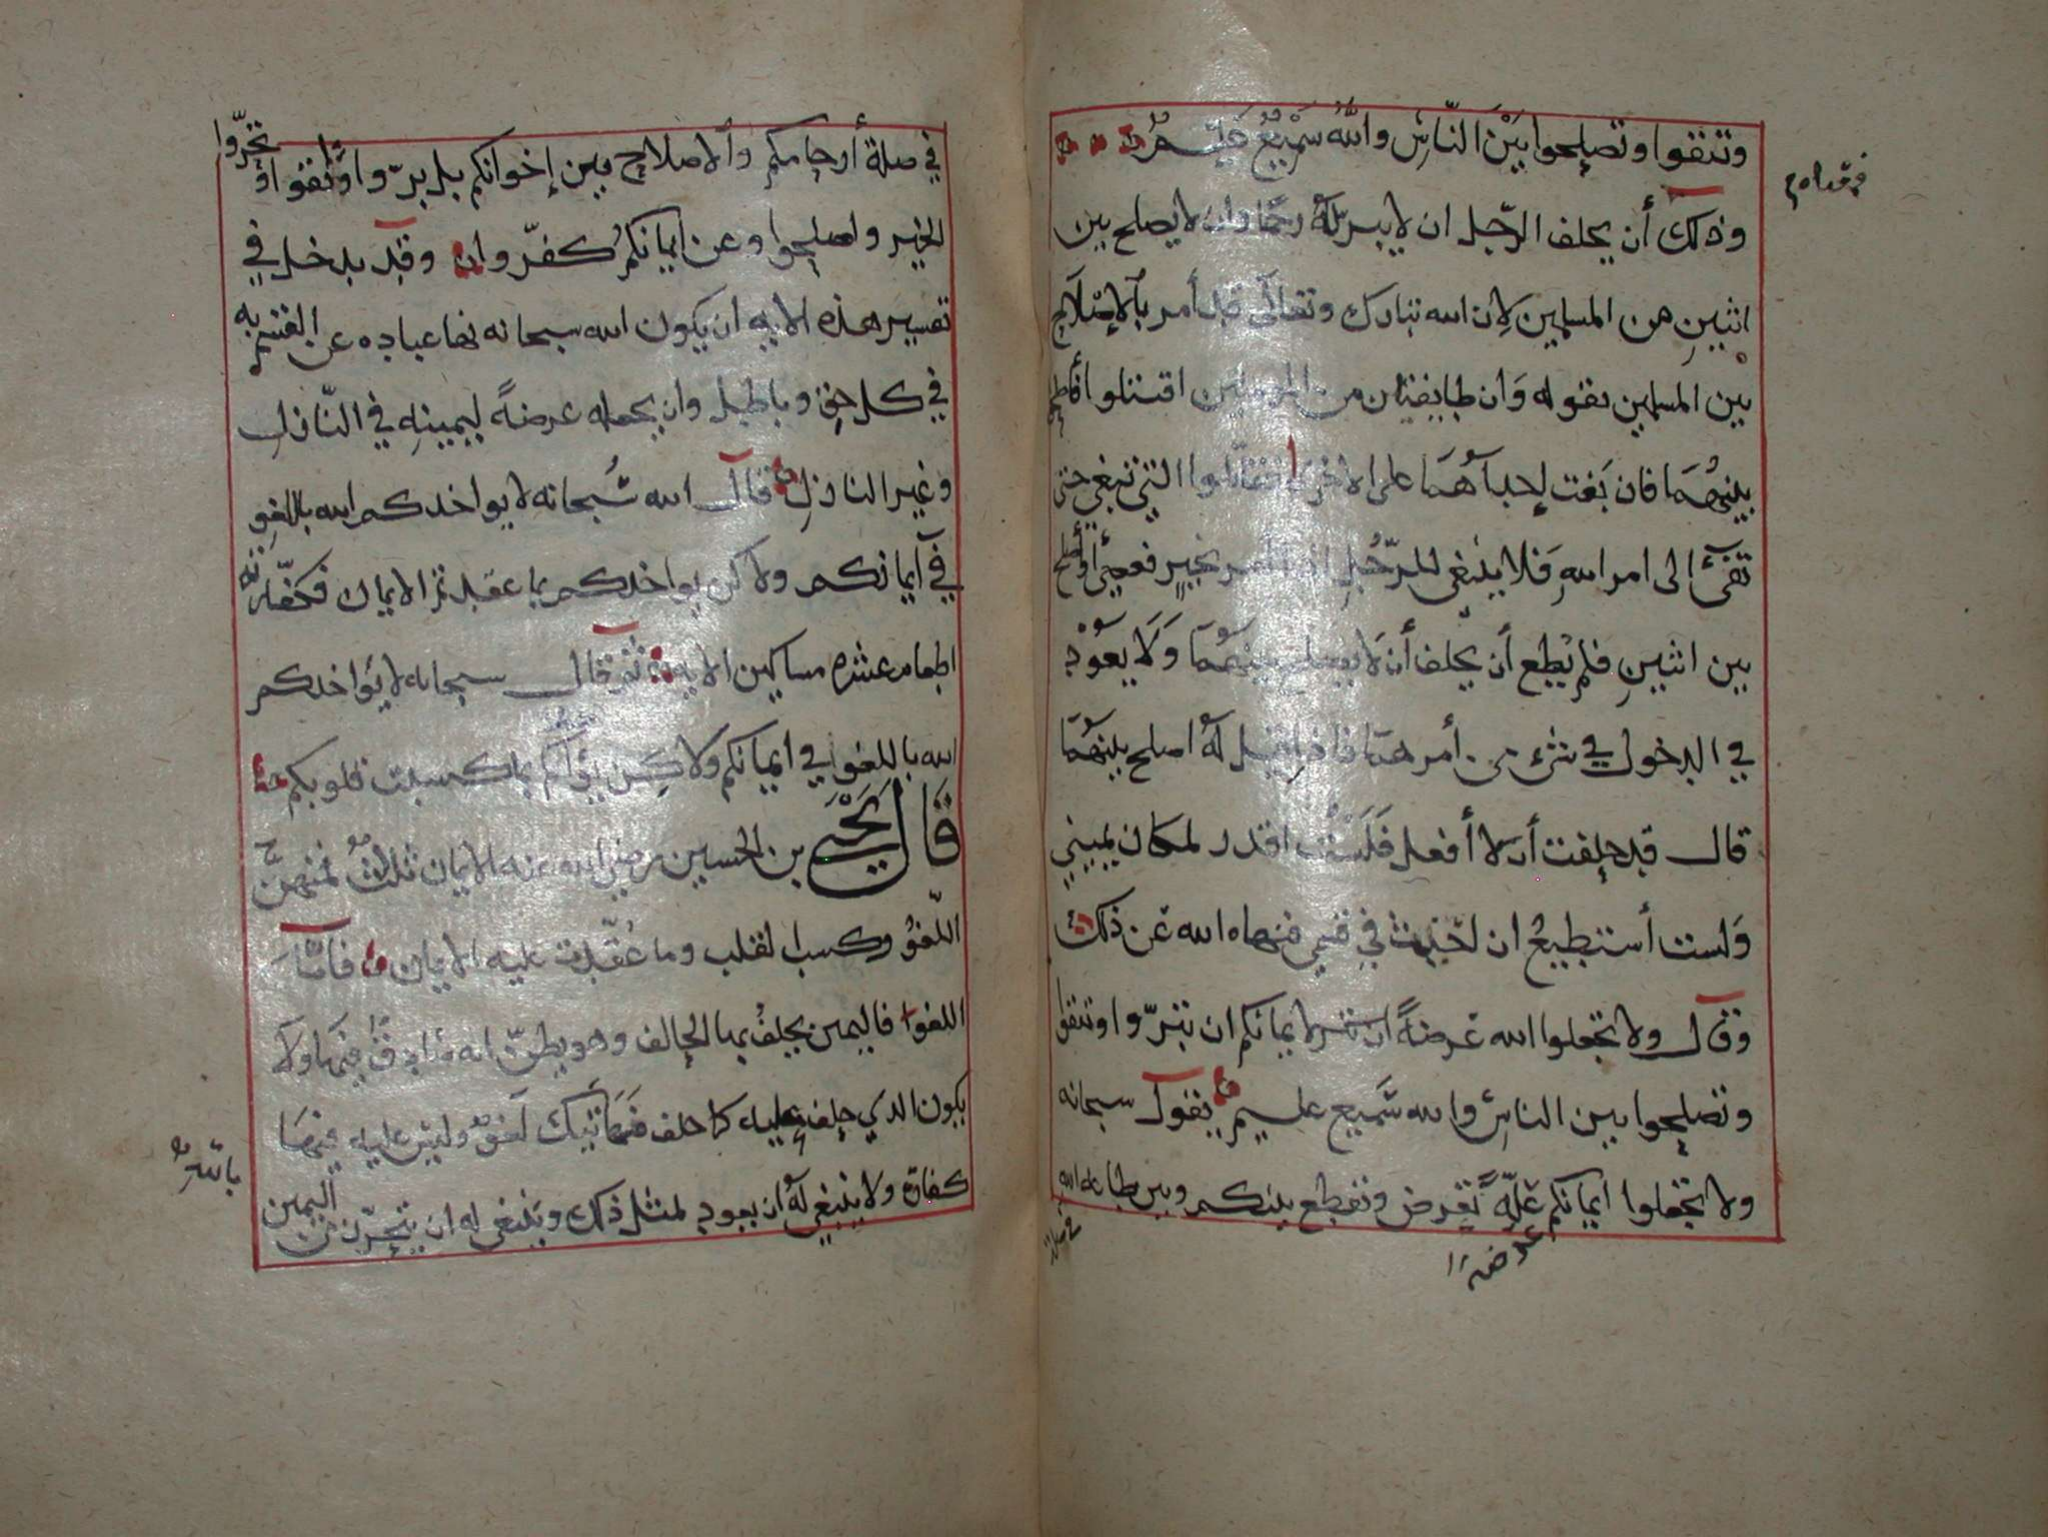 وتتقوا وتصلحوا بَيْنَ النّاسِ واللَّهُ سَمْيعٌ عَلِيمٌ
وذلك أن يحلف الرّجل ان لا يبر لهُ رحمًا وان لا يصلح بين
اثنينِ من المسلمين لِان الله تبارك وتعالَى قد أمر بالاصْلَاح
بين المسلمين بقوله وَان طايفتان من المومنين اقتتلوا فأصلحوا
بينهُمَا فان بَغت إحداهُمَا على الاخرى فقاتلوا التي تبغي حتى
تفىٔ الى امر اللهِ فَلا ينبغى للرّجُلِ اذا بخيرٍ
بين اثنينِ فلم يُطع أن يحلف أن لَا يصلح بينهُمَا وَلَا يعُود
في الدخول في شىء من أمرهمَا فاذا قيل لهُ اصلح بينهُمَا
قال قد حلفت أن لا أفعل فَلَسْتُ اقدر لمكان يميني
وَلست أستطيعُ ان احْنِث في قسمي فنهاه الله عَن ذلك
وقال ولا تجعلوا الله عُرضةً لايمانكم ان تبرّوا وتتقوا
وتصلحوا بين الناسِ والله سَميع عليم يقول سبحانه
ولا تجعلوا ايمانكم علّةً تعرض وتقطع بينكم وبين طاعه الله
عرضه
في صلة أرحامكم والاصلاح بين إخوانكم بل برّوا واتّقوا وتحرّوا
الخير واصلحوا وعن ايمانكم كفّروا وقد يدخل في
تفسير هذه الايه ان يكون الله سبحانه نها عباده عن القسم به
في كل حق وباطل وان يجعله عرضةً ليمينهِ في النّازل
وغير النازل قال الله سُبحانه لا يواخدكم الله باللغوِ
في أيمانكم ولاكن يواخدكم بما عقدتم الايمان فكفّارته
اطعام عشره مساكين الايه ثم قال سبحانه لا يُواخدكم
الله باللغو في ايمانكم ولاكن بما كسبت قلوبكم
قَالَ يَحْيَى بن الحسين رضي الله عنه الايمان ثلاثٌ فمنهنّ
اللّغوُ وكسب القلب وما عُقّدت عليه الايمان فامّا
اللغوا فاليمين يحلفُ بها الحالف وهو يظنّ انه صَادقٌ فيهَا ولا
يكون الدي حلف عليه كما حلف فهَاتيك لَغوٌ وليسَ عليه فيهَا
كفارة ولا ينبغي لهُ ان يعود لمثل ذلك وينبغى له ان يتحرّز من اليمين
باللهِ